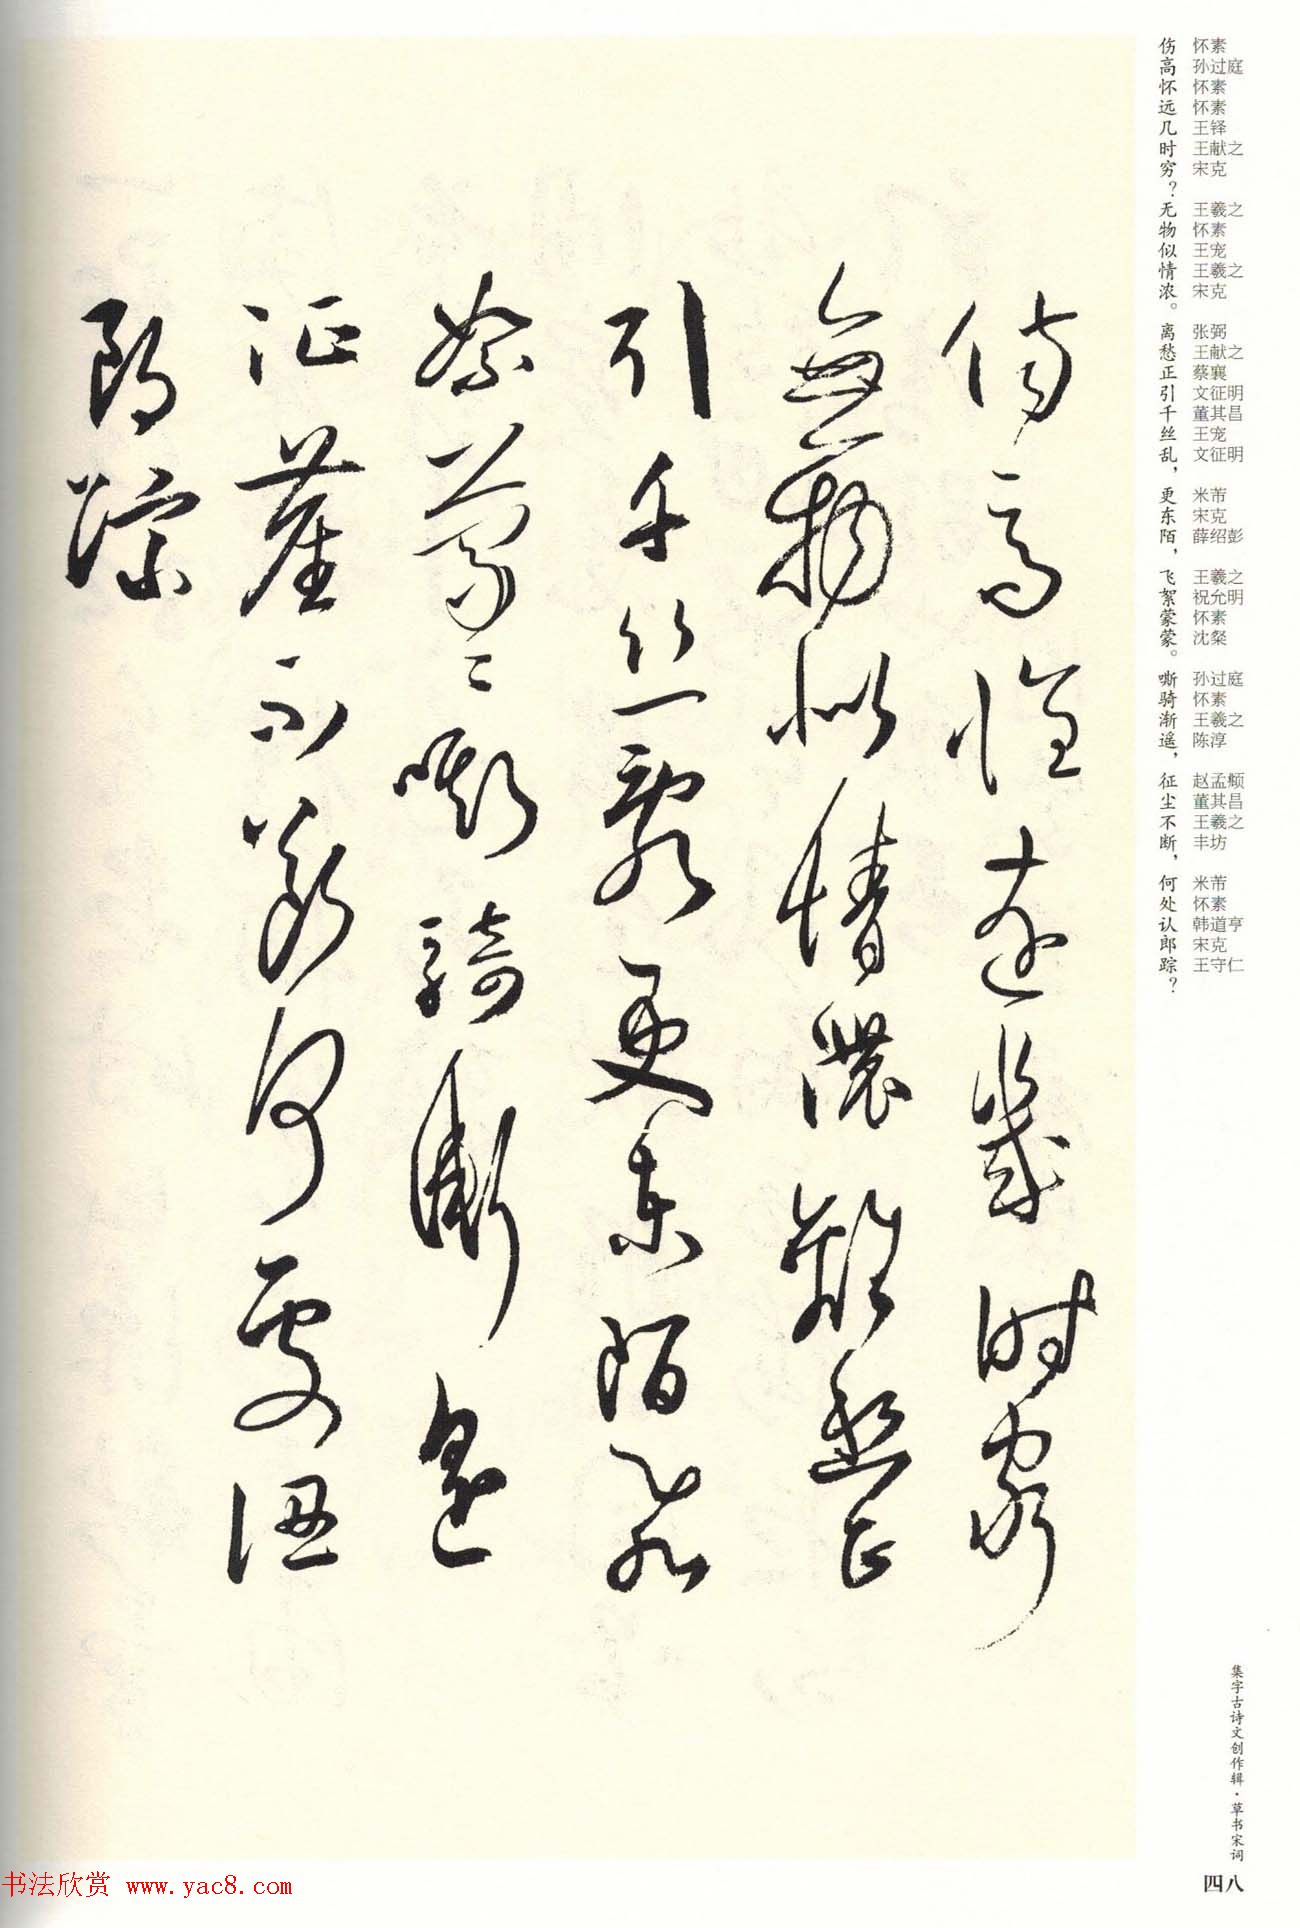 怀素 孙过庭 怀素 怀素 王铎 王献之 宋克 王羲之 怀素 王宠 王羲之 宋克 张弼 王献之 蔡襄 文征明 董其昌 王宠 文征明 米芾 宋克 薛绍彭 王羲之 祝允明 怀素 沈粲 孙过庭 怀素 王羲之 陈淳 赵孟頫 董其昌 王羲之 丰坊 米芾 怀素 韩道亨 宋克 王守仁
伤高怀远几时穷？无物似情浓。离愁正引千丝乱，更东陌，飞絮蒙蒙。嘶骑渐遥，征尘不断，何处认郎踪？
傷高懷遠幾時窮
無物似情濃離愁正
引千丝亂更東陌飛
絮蒙〻嘶騎漸遥
征塵不斷何處認
郎蹤
集字古诗文创作辑·草书宋词
四八
书法欣赏 www.yac8.com